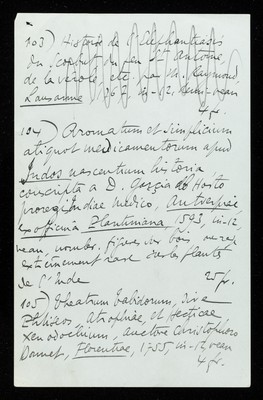 103) Histoire de l'Elephantiasis
du scorbut du feu St Antoine
de la vérole, etc. par M. Raymond,
Lausanne 1767. in-12, demi-veau
4 fr.
104) Aromatum et Simplicium
aliquot medicamentorum apud
Indos nascentium historia
conscripta a D. Garcia ab Horto
proregis Indiae medico, Antverpiae,
ex officina Plantiniana, 1593, in-12,
veau, nombr. figures sur bois, ouvrage
extrêmement rare sur les plantes
de l'Inde 25 fr.
105) Theatrum Tabidorum, sive
Phtiseos, atrophiae et hecticae
xenodochium, auctore Christophoro
Bennet, Florentiae, 1755, in-12, veau
4 fr.